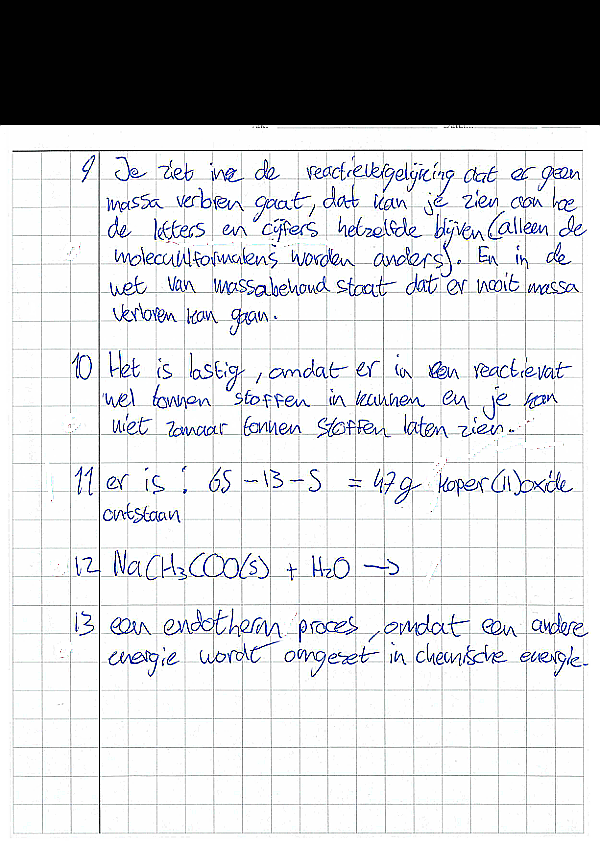 9 Je ziet in de reactievergelijking dat er geen
massa verloren gaat, dat kan je zien aan hoe
de letters en cijfers hetzelfde blijven (alleen de
molecuulformules worden anders). En in de
wet van massabehoud staat dat er nooit massa
verloren kan gaan.
10 Het is lastig, omdat er in een reactievat
wel tonnen stoffen in kunnen en je kan
niet zomaar tonnen stoffen laten zien.
11 er is : 65 - 13 - 5 = 47g koper(II)oxide
ontstaan
12 NaCH₃COO(s) + H₂O →
13 een endotherm proces, omdat een andere
energie wordt omgezet in chemische energie.